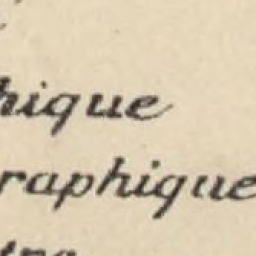 hique
raphique
tre